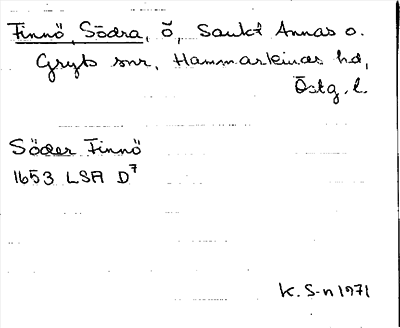 Finnö, Södra, ö, Sankt Annas o.
Gryts snr, Hammarkinds hd,
Östg. l.
Söder Finnö
1653 LSA D7
K. S-n 1971